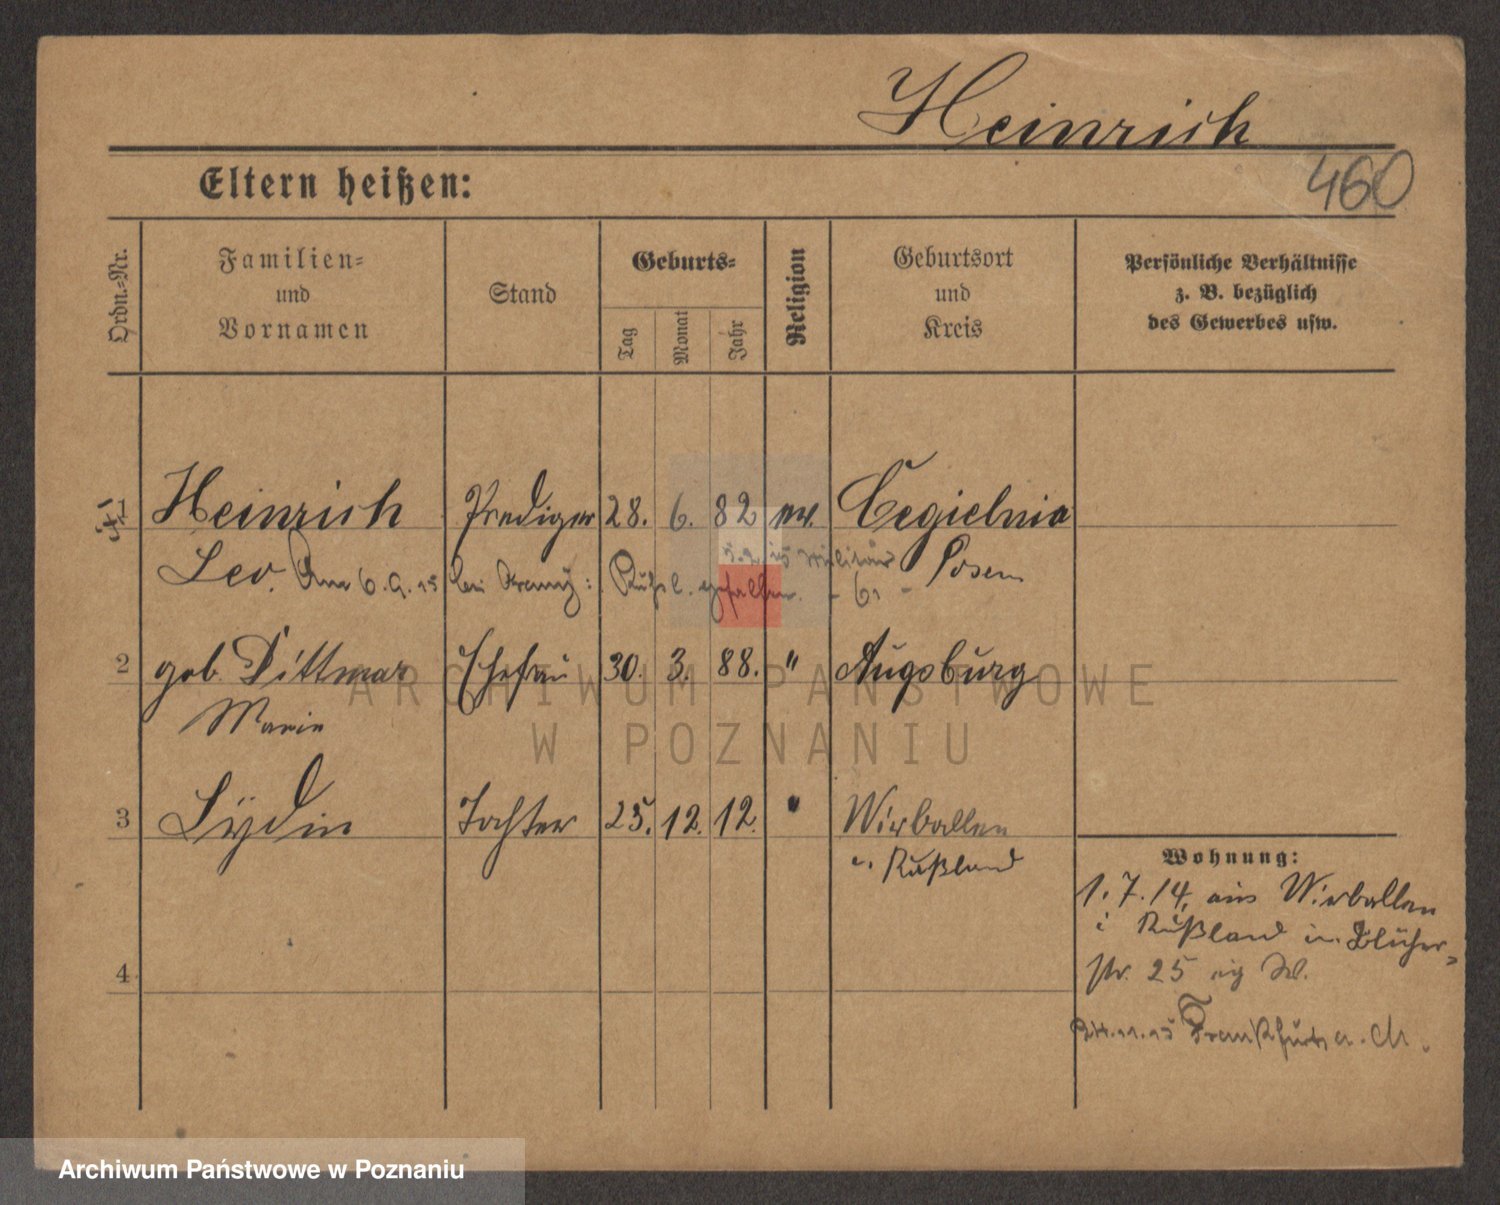 Heinrich
460
Eltern heißen:
Ordn.=Nr.
Familien=
und
Vornamen
Stand
Geburts=
Tag
Monat
Jahr
Religion
Geburtsort
und
Kreis
Persönliche Verhältnisse
z. B. bezüglich
des Gewerbes usw.
1 Heinrich Prediger 28. 6. 82 ev. Cegielnia
Militär
Leo. Am 6.9.15 bei Rußl. gefallen. Posen
2 geb. Dittmar Ehefrau 30. 3. 88. " Augsburg
Marie
3 Lydia Tochter 25. 12. 12. " Wirballen
i. Rußland
Wohnung:
1. 7. 14. aus Wirballen
i Rußland in Blücher=
str. 25
4
11.15 Frankfurt a. M.
ARCHIWUM PAŃSTWOWE
W POZNANIU
Archiwum Państwowe w Poznaniu